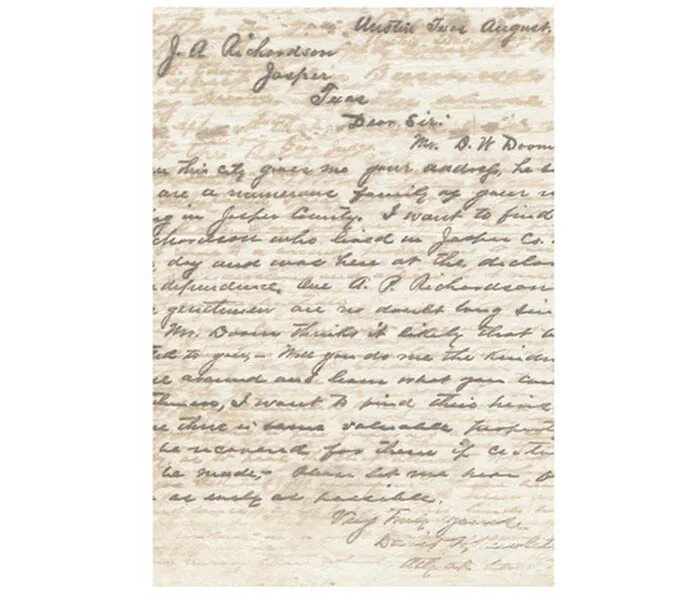 Austin Texas August.
J. A Richardson
Jasper
Texas
Dear Sir:
Mr. D. W Doom
this city gives me your address, he
are a numerous family of your
in Jasper County. I want to find
who lived in Jasper Co.
day and was here at the
One A. P. Richardson
gentlemen are no doubt long
Mr. Doom thinks it likely that
to you,- Will you do me the
around and learn what you can
I want to find their
there is some valuable
be recovered for them if
be made,- Please let me hear
as early as possible.
Very Truly yours
Atty at